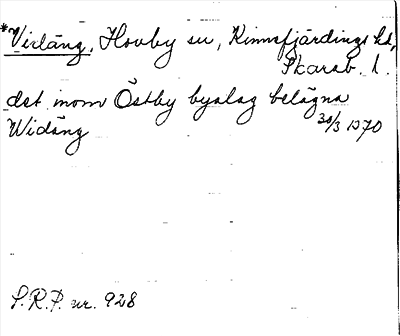 *Virläng, Hovby sn, Kinnefjärdings hd,
Skarab. l.
det inom Östby byalag belägna
Widäng 30/3 1370
S.R.P. nr. 928